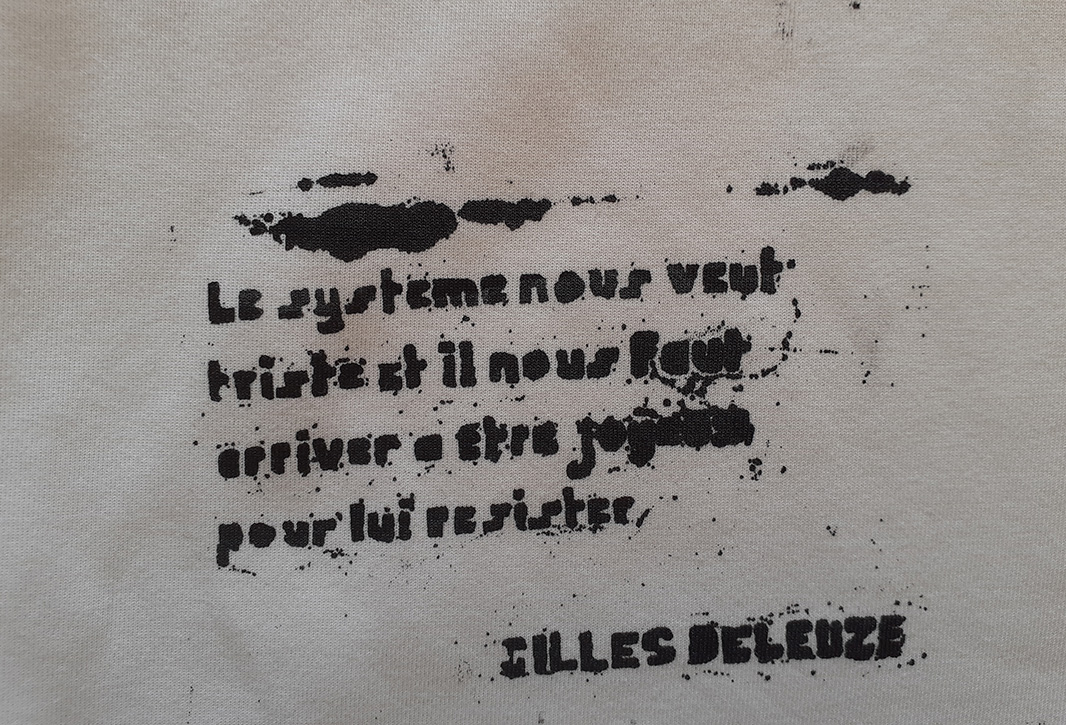 Le systeme nous veut
triste et il nous faut
arriver a etre joyeux
pour lui resister,
GILLES DELEUZE